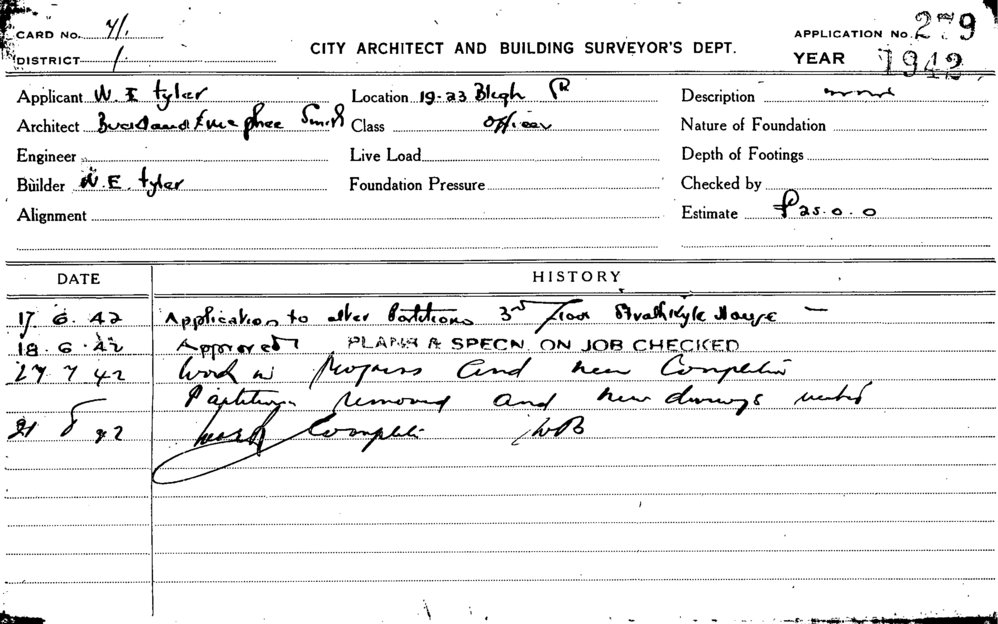 CARD No. 71.
DISTRICT 1
CITY ARCHITECT AND BUILDING SURVEYOR'S DEPT.
APPLICATION No. 279
YEAR 1942
Applicant W. E tyler
Location 19-23 Bligh
Description
Architect Smith
Class Offices
Nature of Foundation
Engineer
Live Load
Depth of Footings
Builder W. E. tyler
Foundation Pressure
Checked by
Alignment
Estimate £25.0.0
DATE HISTORY
17. 6. 42 Application to alter Partitions 3rd Floor Strathkyle House
18. 6. 42 Approved PLANS & SPECN. ON JOB CHECKED
27 7 42 Work in progress and near Completion
Partitions removed and new
21 8 42 Work Complete WB